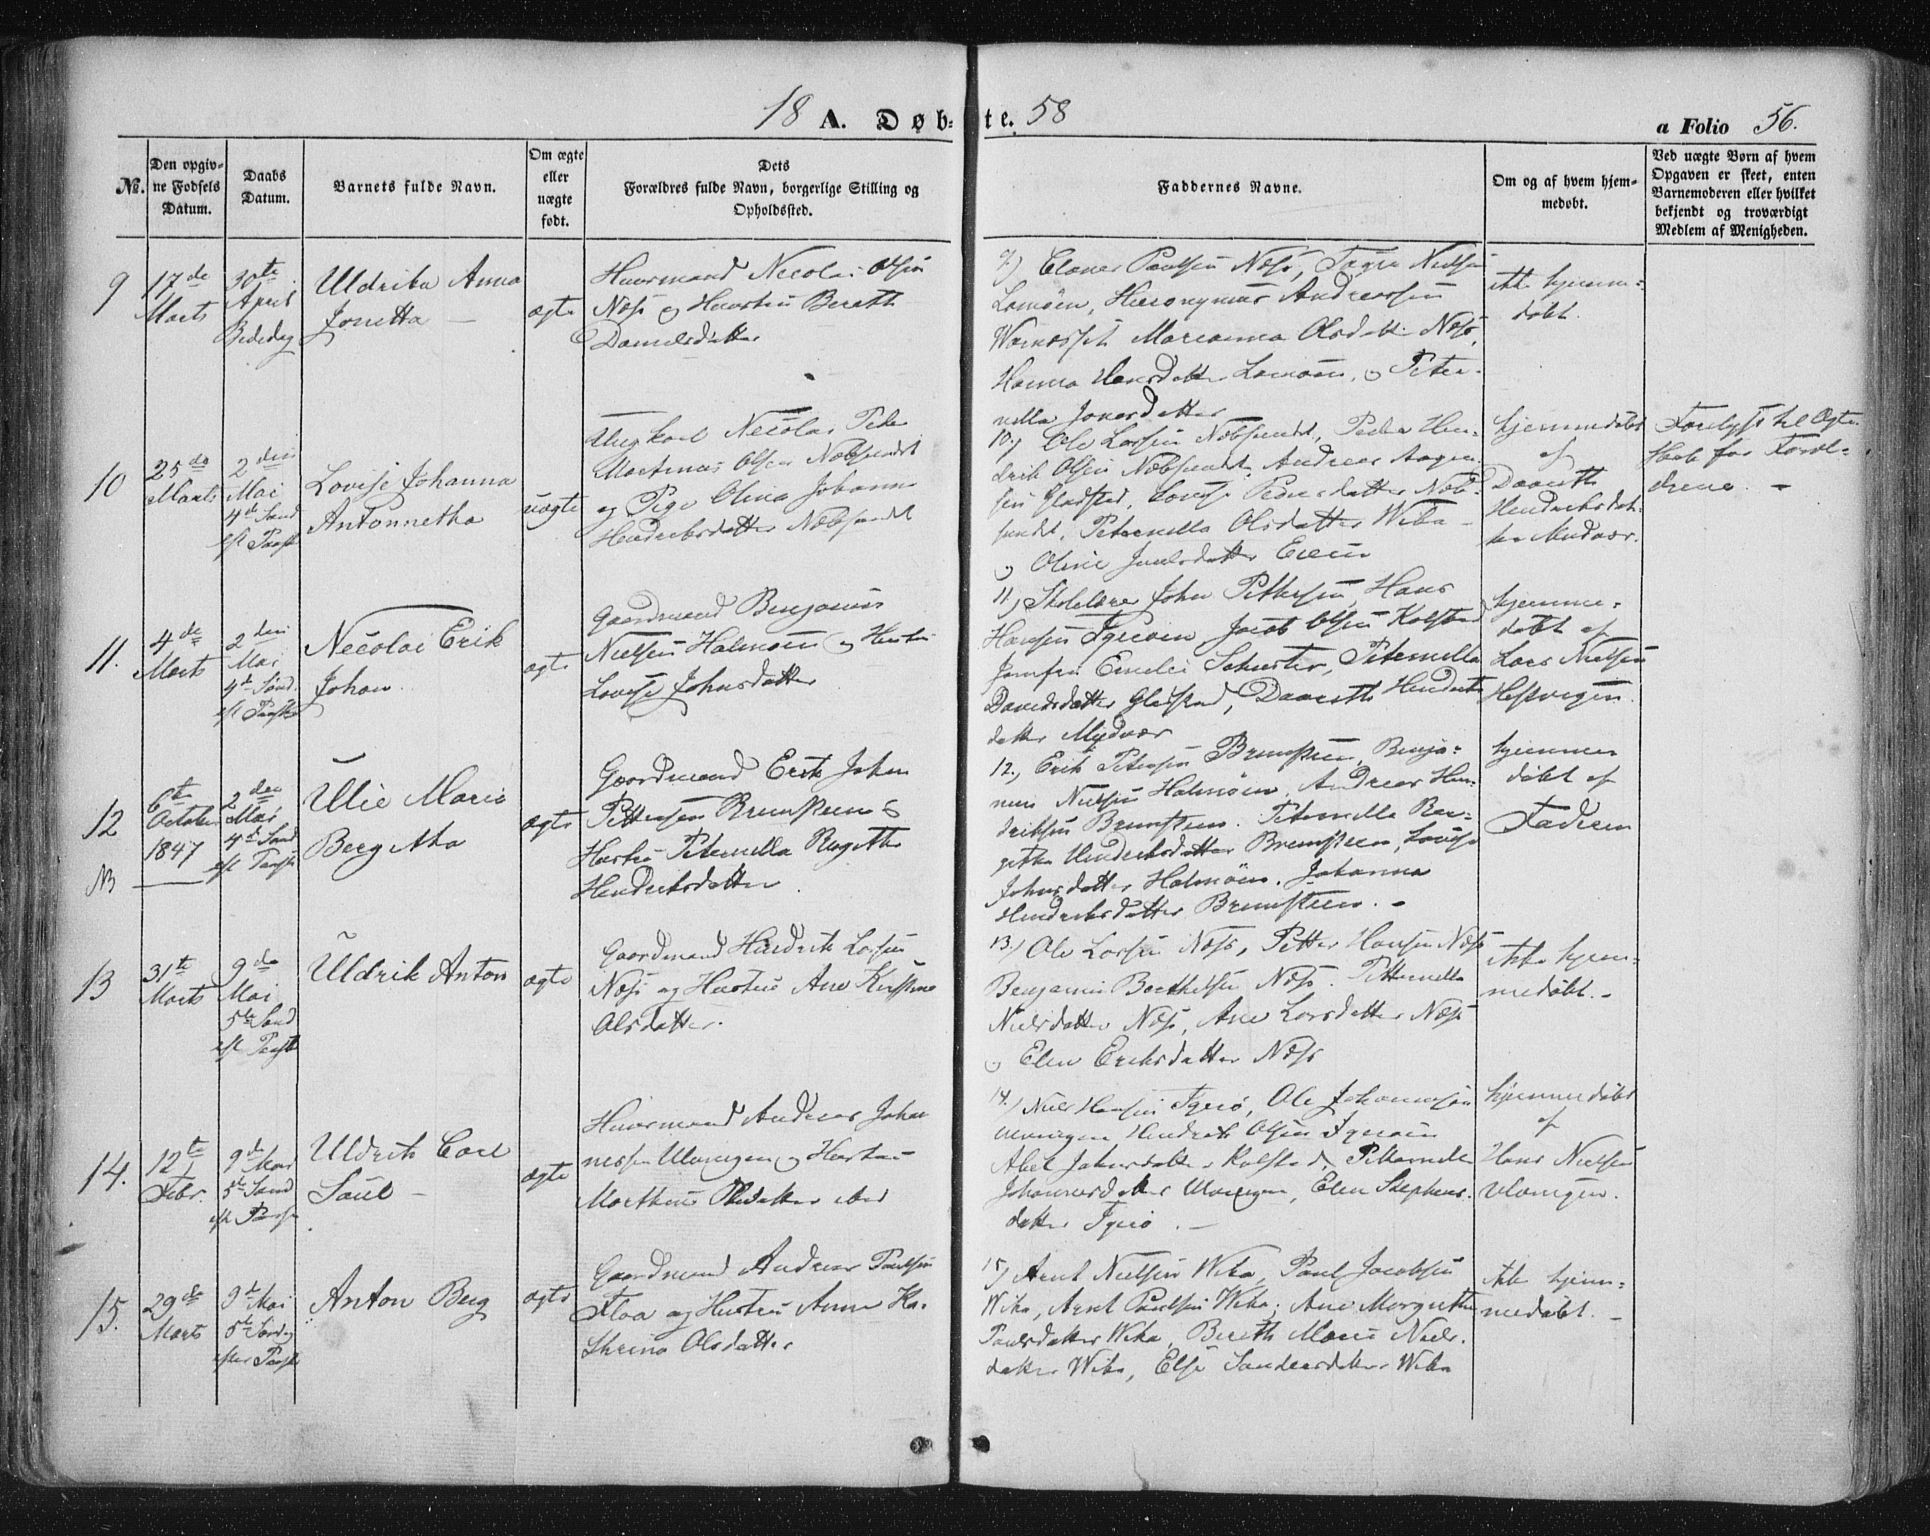 18 A. Døb- te. 58
a Folio 56.
№.
Den opgiv-
ne Fødsels
Datum.
Daabs
Datum.
Barnets fulde Navn.
Om ægte
eller
uægte
født.
Dets
Forældres fulde Navn, borgerlige Stilling og
Opholdssted.
Faddernes Navne.
Om og af hvem hjem-
medøbt.
Ved uægte Børn af hvem
Opgaven er skeet, enten
Barnemoderen eller hvilket
bekjendt og troværdigt
Medlem af Menigheden.
9
17de
Marts
30te
April
Bededag
Uldrika Anna
Jonetta
ægte
Huusmand Necolai Olsen
Næss og Hustru Bereth
Danielsdatter
9) Paulsen Næss,
Hieronymus Andreassen
Marianna Olsdatter Næss,
Hanna Hansdatter og Peter-
nella Jonasdatter
ikke hjemme-
døbt.
10
25de
Marts
2den
Mai
4de Sønd
eft Paaske
Lovise Johanna
Antonnetha
uægte
Ungkarl Necolai Peder
Martinus Olsen Næbsundet
og Pige Olina Johanna
Hendriksdatter Næbsundet
10) Ole Larsen Næbsundet, Peder Hen-
drik Olsen Næbsundet, Andreas Aagen-
sen Gladstad, Lovise Pedersdatter Næb-
sundet, Peternella Olsdatter Wika
og Oline
hjemmedøbt
af
Daareth
Hendriksdat-
ter
til Ægte-
skab for Foræl-
drene. -
11.
4de
Marts
2den
Mai
4de Sønd.
eft Paaske
Necolai Erik
Johan
ægte
Gaardmand Benjamin
Nielsen Halmøen og Hustru
Lovise Johnsdatter
11) Skolelærer John Pettersen, Hans
Hansen Jacob Olsen Kolstad
Jomfru Emelie Peternella
Davidsdatter Gladstad, Daareth Hendriks
datter
hjemme-
døbt af
Lars Nielsen
12
NB
6te
October
1847
2den
Mai
4de Sønd
eft Paaske
Ulie Maria
Berg Ata
ægte
Gaardmand Erik Johan
Pettersen Bremsteen &
Hustru Peternella Regitte
Hendriksdatter.
12) Erik Petersen Bremsteen, Benja-
min Nielsen Halmøen, Andreas Hen-
driksen Bremsteen. Peternella Re-
gitte Hendriksdatter Bremsteen, Lovise
Johnsdatter Halmøen. Johanna
Hendriksdatter Bremsteen. -
hjemme
døbt af
Faderen
13
31te
Marts
9de
Mai
5te Sønd
eft Paaske
Uldrik Anton
ægte
Gaardmand Hendrik Larsen
Næss og Hustru Ane Kirstine
Olsdatter.
13) Ole Larsen Næss, Petter Hansen Næss
Benjamin Berthelsen Næss. Petternella
Nielsdatter Næss, Ane Larsdatter Næss
og Elen Eriksdatter Næss
ikke hjem-
medøbt. -
14.
12te
Febr.
9de Mai
5te Sønd
eft Paaske
Uldrik Carl
Saul -
ægte
Huusmand Andreas Johan
nessen Ulvingen og Hustru
14) Niels Hansen Ole Johannessen
Ulvingen, Hendrik Olsen
Abel Johnsdatter Kolstad, Petternella
Johannesdatter Ulvingen, Elen Stephens-
datter
hjemmedøbt
af
Hans Nielsen
Ulvingen.
15.
29de
Marts
9de Mai
5te Søndag
efter Paaske
Anton Berg
ægte
Gaardmand Andreas Paulsen
Floa og Hustru Anne Ka-
thrina Olsdatter
15) Arnt Nielsen Wika, Paul Jacobsen
Wika, Arnt Paulsen Wika. Ane Margrethe
Paulsdatter Wika, Bereth Maria Niels-
datter Wika, Else Wika
ikke hjem-
medøbt. -